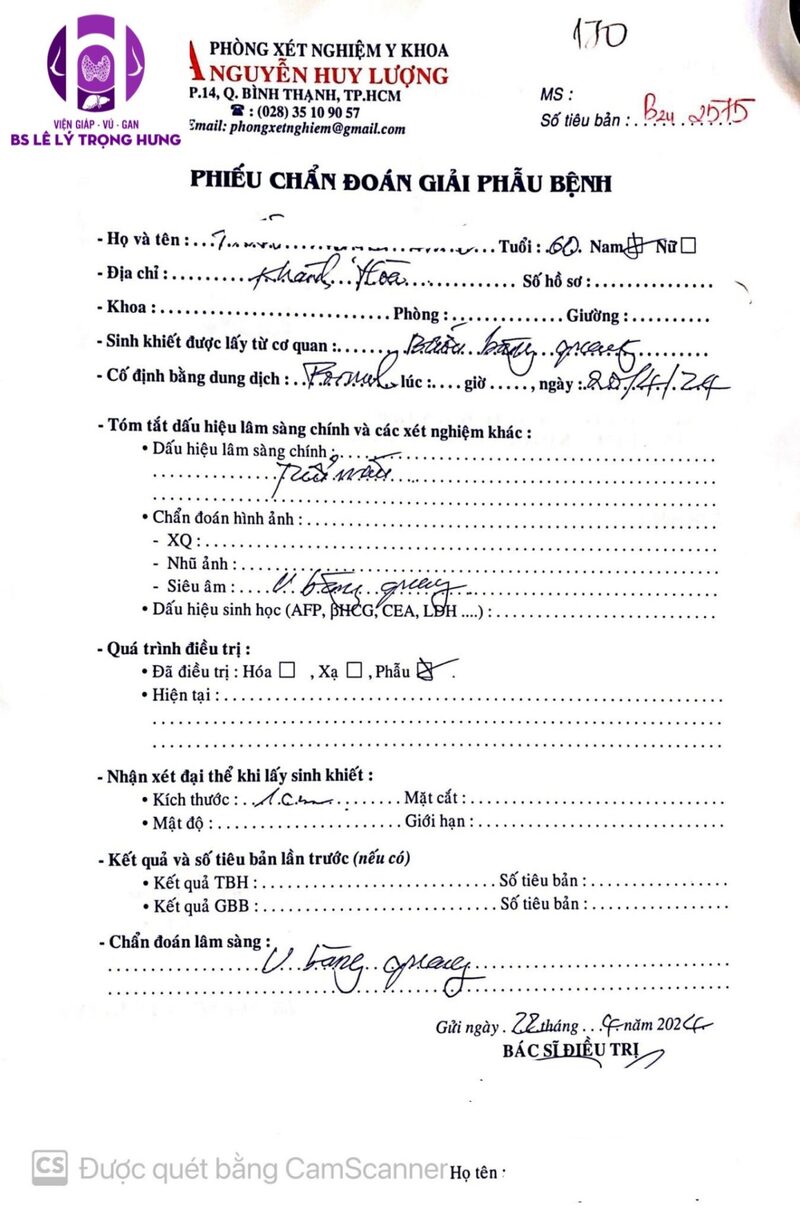 170
VIỆN GIÁP - VÚ - GAN
BS LÊ LÝ TRỌNG HƯNG
PHÒNG XÉT NGHIỆM Y KHOA
NGUYỄN HUY LƯỢNG
P.14, Q. BÌNH THẠNH, TP.HCM
☎ : (028) 35 10 90 57
Email: phongxetnghiem@gmail.com
MS :
Số tiêu bản : B24 2575
PHIẾU CHẨN ĐOÁN GIẢI PHẪU BỆNH
- Họ và tên : Tuổi : 60. Nam ☒ Nữ ☐
- Địa chỉ : Khánh Hòa Số hồ sơ :
- Khoa : Phòng : Giường :
- Sinh khiết được lấy từ cơ quan : Bướu bàng quang
- Cố định bằng dung dịch : Formol lúc : giờ , ngày : 20/4/24
- Tóm tắt dấu hiệu lâm sàng chính và các xét nghiệm khác :
• Dấu hiệu lâm sàng chính :
Tiểu máu
• Chẩn đoán hình ảnh :
- XQ :
- Nhũ ảnh :
- Siêu âm : U bàng quang
• Dấu hiệu sinh học (AFP, βHCG, CEA, LDH ....) :
- Quá trình điều trị :
• Đã điều trị : Hóa ☐ , Xạ ☐ , Phẫu ☒ .
• Hiện tại :
- Nhận xét đại thể khi lấy sinh khiết :
• Kích thước : 1cm Mặt cắt :
• Mật độ : Giới hạn :
- Kết quả và số tiêu bản lần trước (nếu có)
• Kết quả TBH : Số tiêu bản :
• Kết quả GBB : Số tiêu bản :
- Chẩn đoán lâm sàng :
U bàng quang
Gửi ngày . 22 tháng . 4 năm 2024
BÁC SĨ ĐIỀU TRỊ
CS Được quét bằng CamScanner
Họ tên :